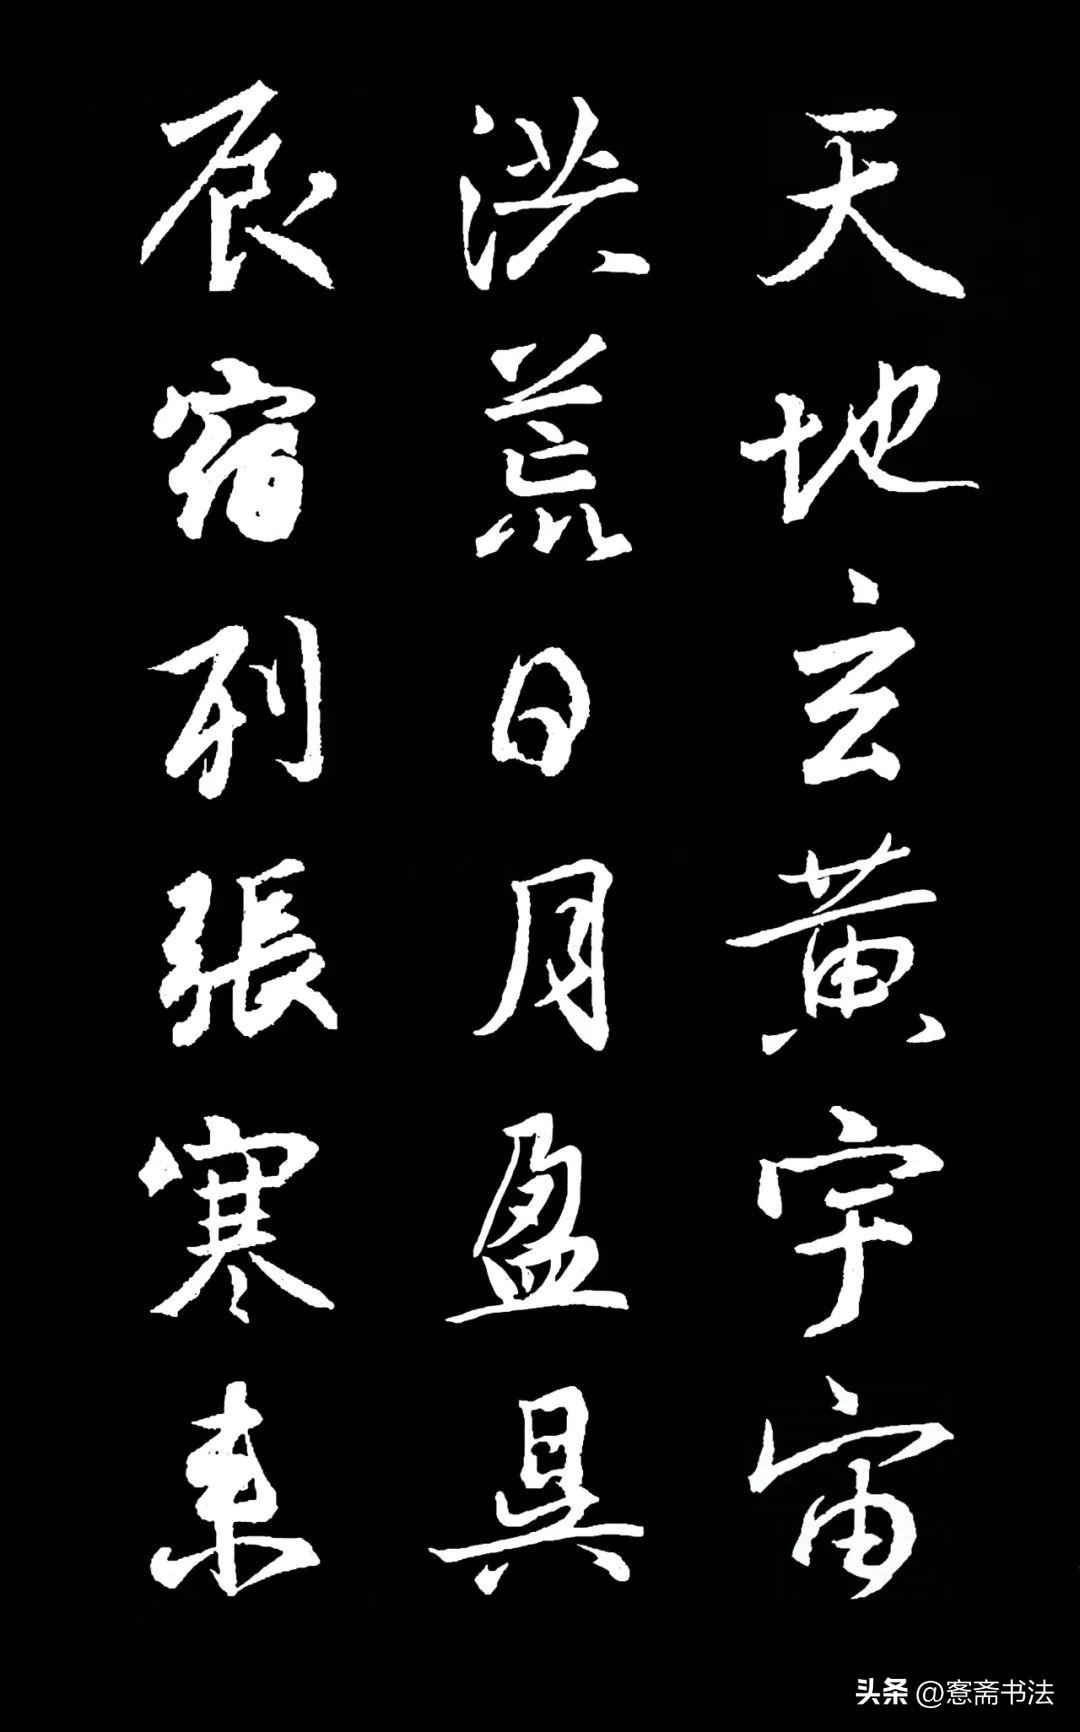 天地玄黄宇宙
洪荒日月盈昃
辰宿列張寒来
头条 @愙斋书法